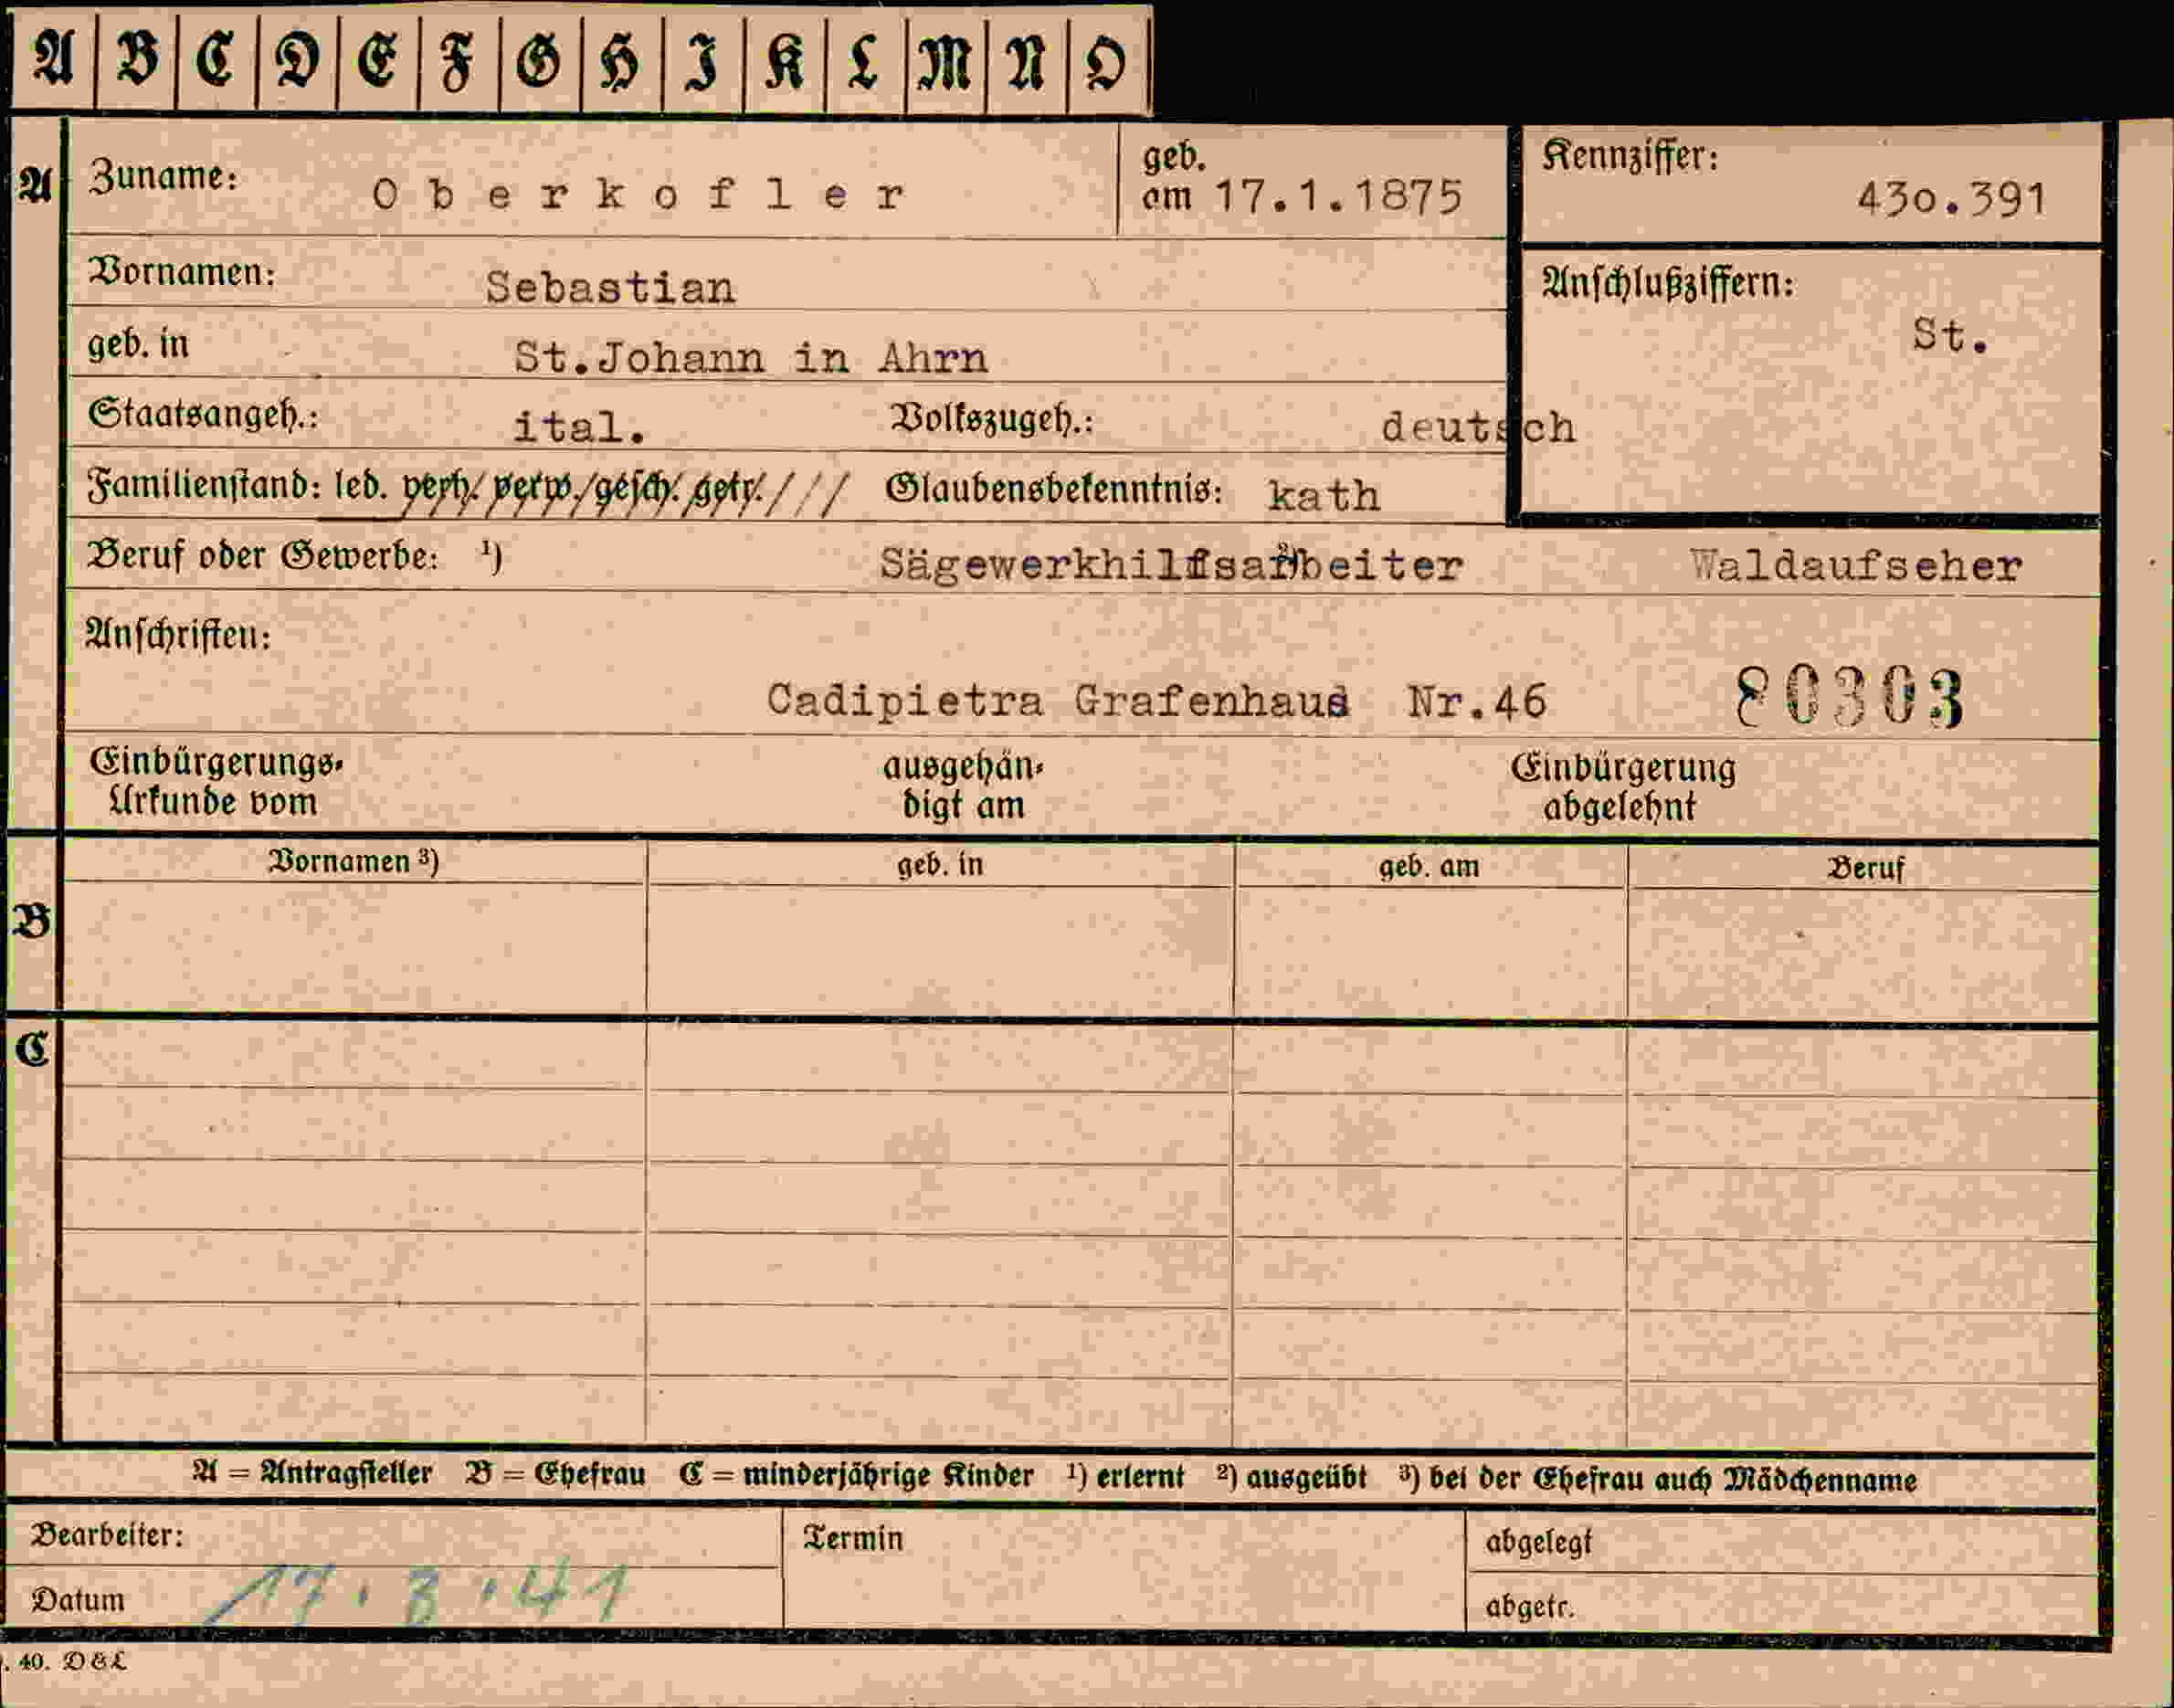 A B C D E F G H I K L M N O
A Zuname: Oberkofler geb. am 17.1.1875 Kennziffer: 430.391
Vornamen: Sebastian Anschlußziffern: St.
geb. in St.Johann in Ahrn
Staatsangeh.: ital. Volkszugeh.: deutsch
Familienstand: led. verh./ verw./gesch. getr./ / / / Glaubensbekenntnis: kath
Beruf oder Gewerbe: ¹) Sägewerkhilfsarbeiter ²) Waldaufseher
Anschriften:
Cadipietra Grafenhaus Nr.46 80303
Einbürgerungs- ausgehän- Einbürgerung
Urkunde vom digt am abgelehnt
Vornamen ³) geb. in geb. am Beruf
B
C
A = Antragsteller B = Ehefrau C = minderjährige Kinder ¹) erlernt ²) ausgeübt ³) bei der Ehefrau auch Mädchenname
Bearbeiter: Termin abgelegt
Datum 17.3.41 abgetr.
. 40. D & L